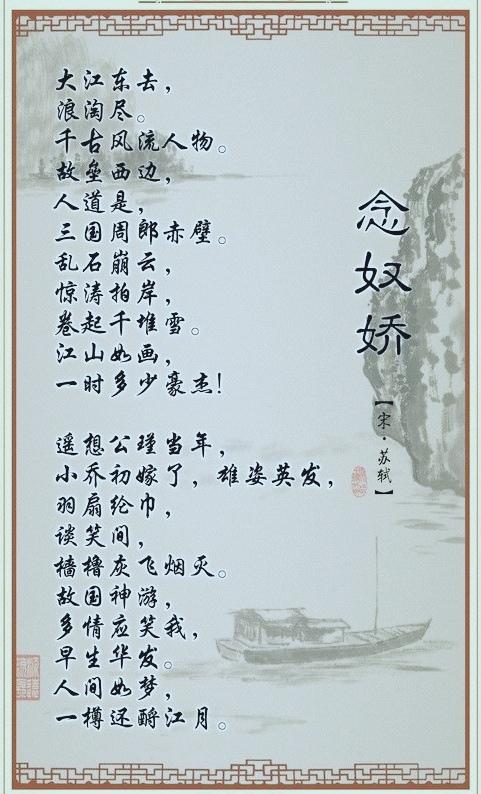 念奴娇
【宋·苏轼】
大江东去，
浪淘尽。
千古风流人物。
故垒西边，
人道是，
三国周郎赤壁。
乱石崩云，
惊涛拍岸，
卷起千堆雪。
江山如画，
一时多少豪杰！
遥想公瑾当年，
小乔初嫁了，雄姿英发，
羽扇纶巾，
谈笑间，
樯橹灰飞烟灭。
故国神游，
多情应笑我，
早生华发。
人间如梦，
一樽还酹江月。